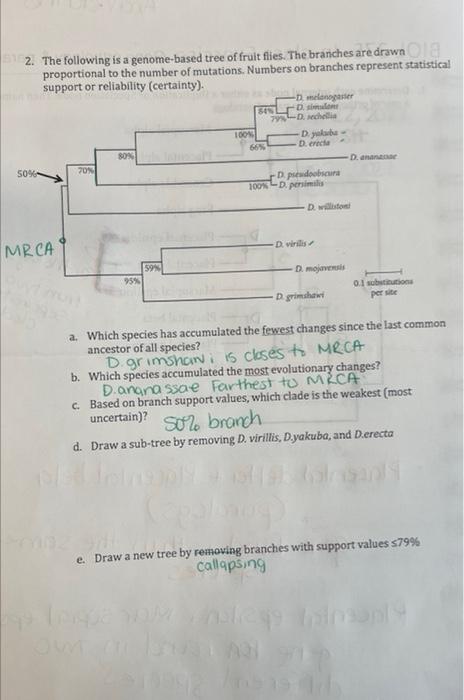 2. The following is a genome-based tree of fruit flies. The branches are drawn
proportional to the number of mutations. Numbers on branches represent statistical
support or reliability (certainty).
D. melanogaster
84%
D. simulans
79%
D. sechellia
100%
D. yakuba
66%
D. erecta
80%
D. ananassae
50%
70%
D. pseudoobscura
100%
D. persimilis
D. willistoni
MRCA
D. virilis
59%
D. mojavensis
95%
0.1 substitutions
per site
D. grimshawi
a. Which species has accumulated the fewest changes since the last common
ancestor of all species?
D. grimshawi is closes to MRCA
b. Which species accumulated the most evolutionary changes?
D. ananassae Farthest to MRCA
c. Based on branch support values, which clade is the weakest (most
uncertain)?
50% branch
d. Draw a sub-tree by removing D. virillis, D.yakuba, and D.erecta
e. Draw a new tree by removing branches with support values ≤79%
callapsing